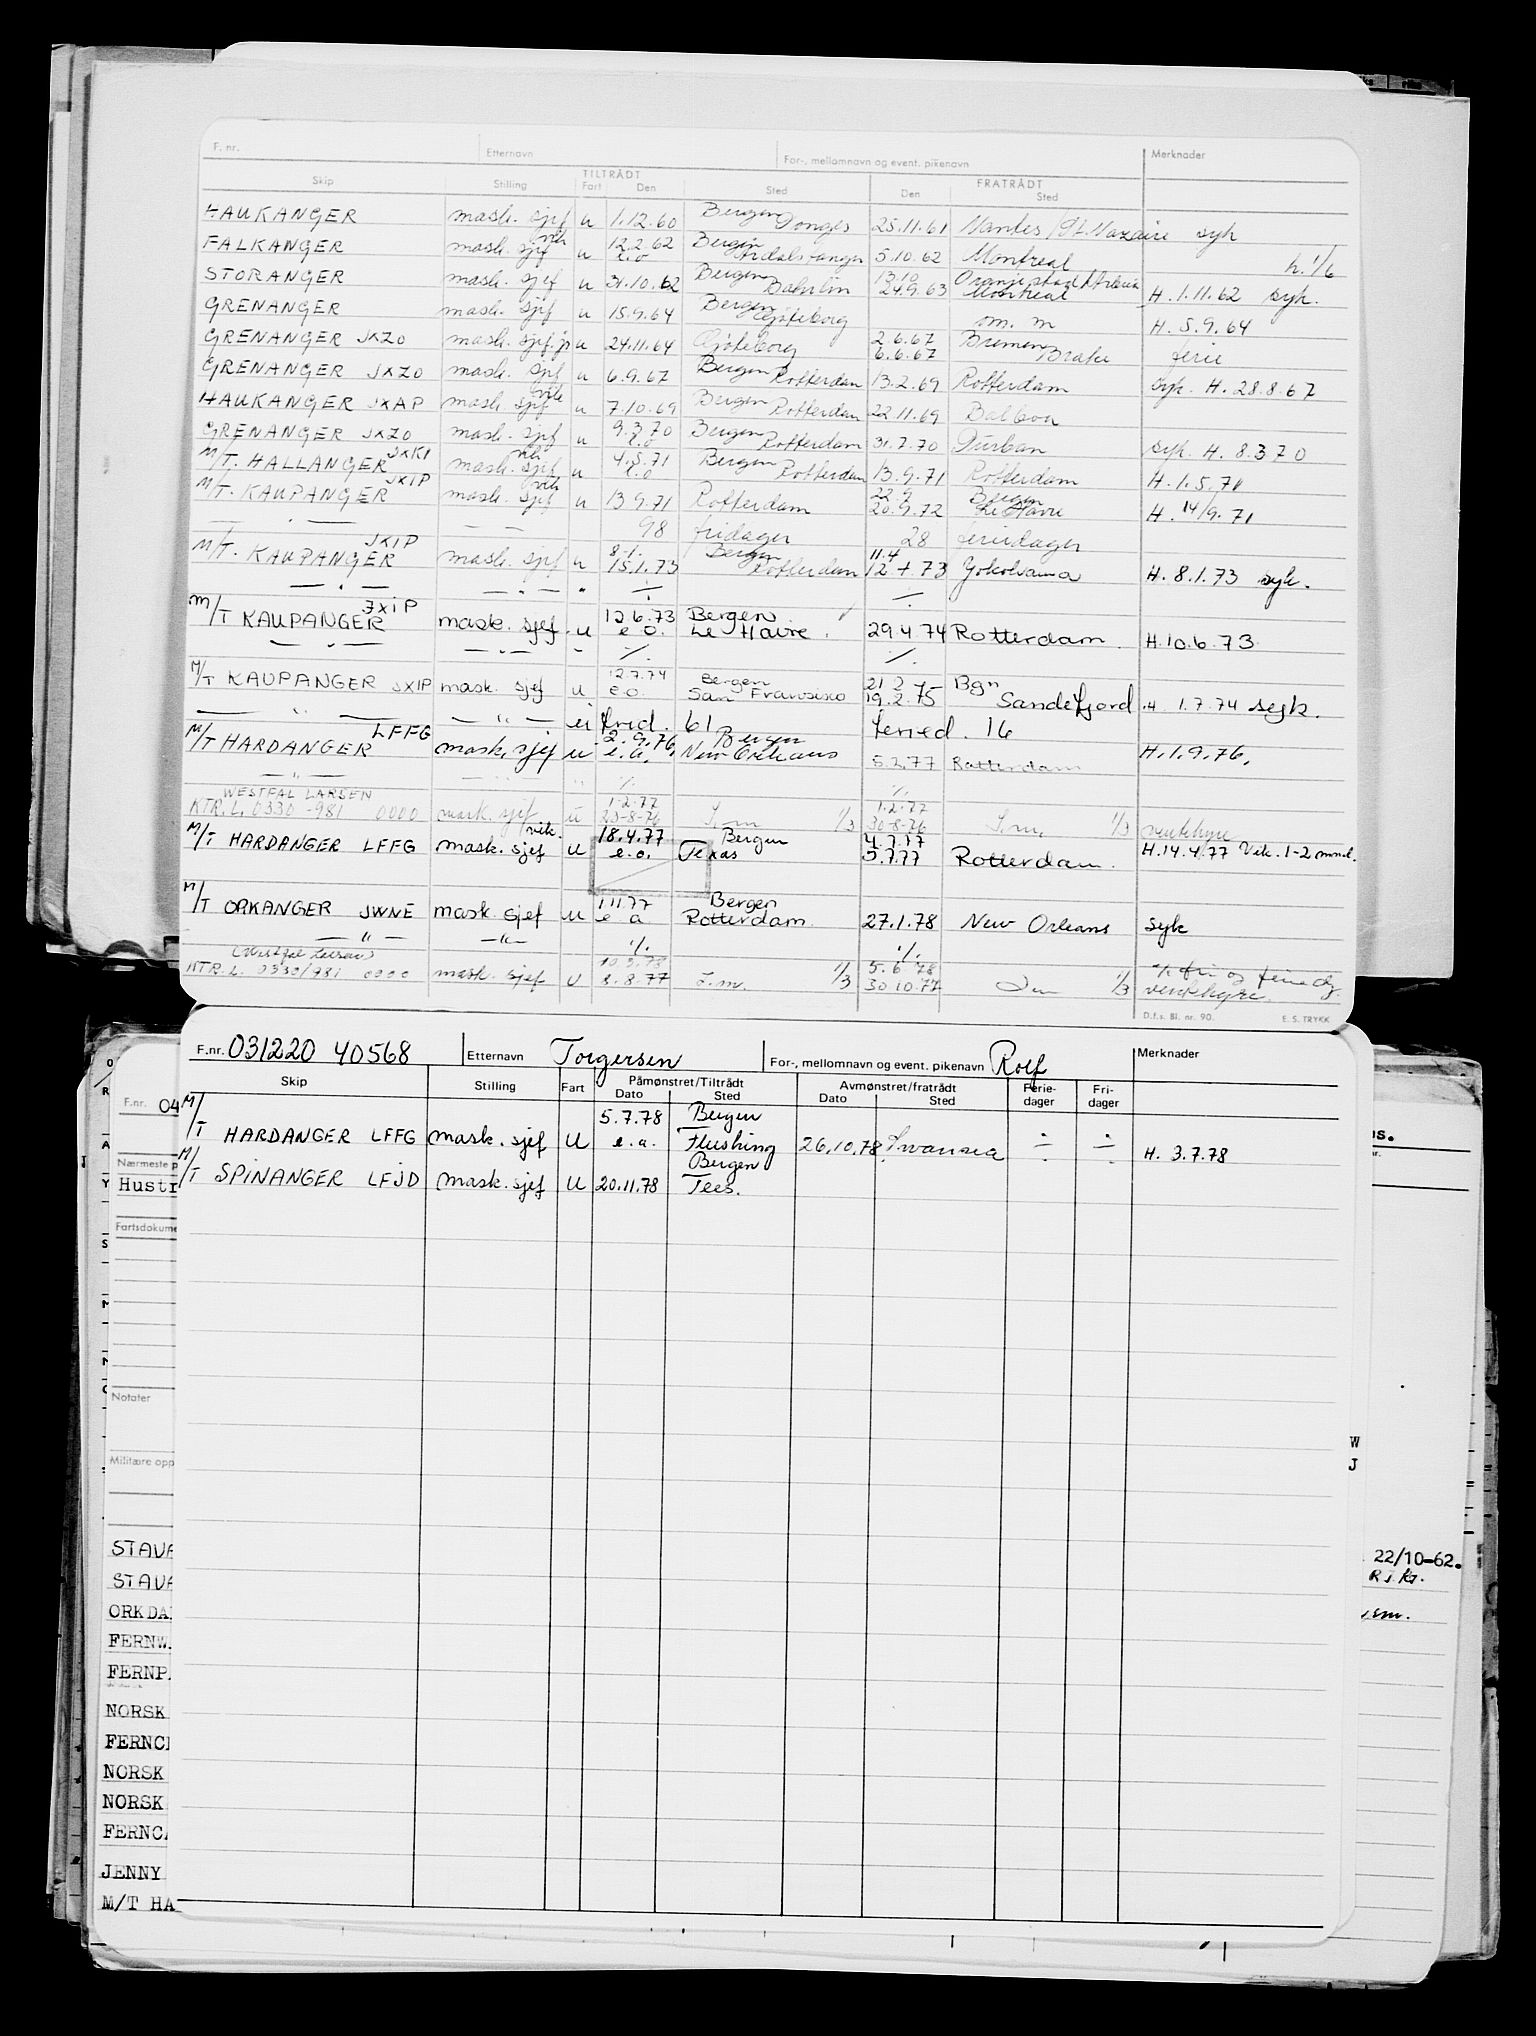 F. nr. Etternavn For-, mellomnavn og event. pikenavn Merknader
TILTRÅDT FRATRÅDT
Skip Stilling Fart Den Sted Den Sted
HAUKANGER mask. sjef u 1.12.60 Bergen Donges 25.11.61 Nantes/St. Nazaire syk
FALKANGER mask. sjef vik u 12.2.62 e.o Bergen Årdalstangen 5.10.62 Montreal h. 1/6
STORANGER mask. sjef u 31.10.62 Bergen 13.10 24.9.63 Oranjestad Montreal H. 1.11.62 syk.
GRENANGER mask. sjef u 15.9.64 Bergen Göteborg om. m H. 5.9.64
GRENANGER JXZO mask. sjef u 24.11.64 Göteborg 2.6.67 6.6.67 Bremen Brake ferie
GRENANGER JXZO mask. sjef u 6.9.67 Bergen Rotterdam 13.2.69 Rotterdam syk. H. 28.8.67
HAUKANGER JXAP mask. sjef vik u 7.10.69 Bergen Rotterdam 22.11.69 Balboa
GRENANGER JXZO mask. sjef u 9.3.70 e.o Bergen Rotterdam 31.7.70 Durban syk. H. 8.3.70
M/T. HALLANGER JXKI mask. sjef vik u 4.5.71 e.o Bergen Rotterdam 13.9.71 Rotterdam H. 1.5.71
M/T. KAUPANGER JXIP mask. sjef vik u 13.9.71 Rotterdam 22.9 20.9.72 Bergen Le Havre H. 14/9.71
— " — — — 98 fridager 28 feriedager
M/T. KAUPANGER JXIP mask. sjef u 8.1. 15.1.73 Bergen Rotterdam 11.4 12.4.73 Yokohama H. 8.1.73 syk.
— " — — " — " ./. ./.
M/T KAUPANGER JXIP mask. sjef. u 12.6.73 e.o. Bergen Le Havre. 29.4.74 Rotterdam. H. 10.6.73
— " — — " — - ./. ./.
M/T KAUPANGER JXIP mask. sjef u 12.7.74 e.o. Bergen San Fransisco 21.2 19.2.75 Bgn Sandefjord H. 1.7.74 syk.
— " — — " — ei frid. 61 feried. 16
M/T HARDANGER LFFG mask. sjef u 2.9.76, e.a. Bergen New Orleans 5.2.77 Rotterdam H. 1.9.76.
— " — ./. ./.
WESTFAL LARSEN
KTR.L. 0330-981 0000 mask. sjef u 1.2.77 20-8-76 L.m 1/3 1.2.77 30-8-76 L.m. 1/3 ventehyre
M/T HARDANGER LFFG mask. sjef vik. u 18.4.77 e.o. Bergen Texas 4.7.77 5.7.77 Rotterdam. H. 14.4.77 Vik. 1-2 mnd.
M/T ORKANGER JWNE mask. sjef u 1.11.77 e a Bergen Rotterdam 27.1.78 New Orleans syk
— " — — " — ./. ./.
(Westfal Larsen)
KTR.L. 0330/981 0000 mask. sjef u 8.8.77 L.m. 1/3 5.6.78 30.10.77 1/3 ./. fri og feriedg. ventehyre
D.f.s. Bl. nr. 90. E. S. TRYKK
F.nr. 031220 40568 Etternavn Torgersen For-, mellomnavn og event. pikenavn Rolf Merknader
Skip Stilling Fart Påmønstret/Tiltrådt Avmønstret/fratrådt Ferie-dager Fri-dager
Dato Sted Dato Sted
M/T HARDANGER LFFG mask. sjef u 5.7.78 e.a. Bergen Flushing 26.10.78 Swansea ÷ ÷ H. 3.7.78
M/T SPINANGER LFJD mask. sjef u 20.11.78 Bergen Tees.
F.nr. 04
Nærmeste p
Hustr
Fartsdokume
Notater
Militære opp
W
J
STAVA
STAVA
ORKDA
FERNW.
FERNP.
NORSK
FERNC
NORSK
NORSK
FERNCA
JENNY
M/T HA
22/10-62.